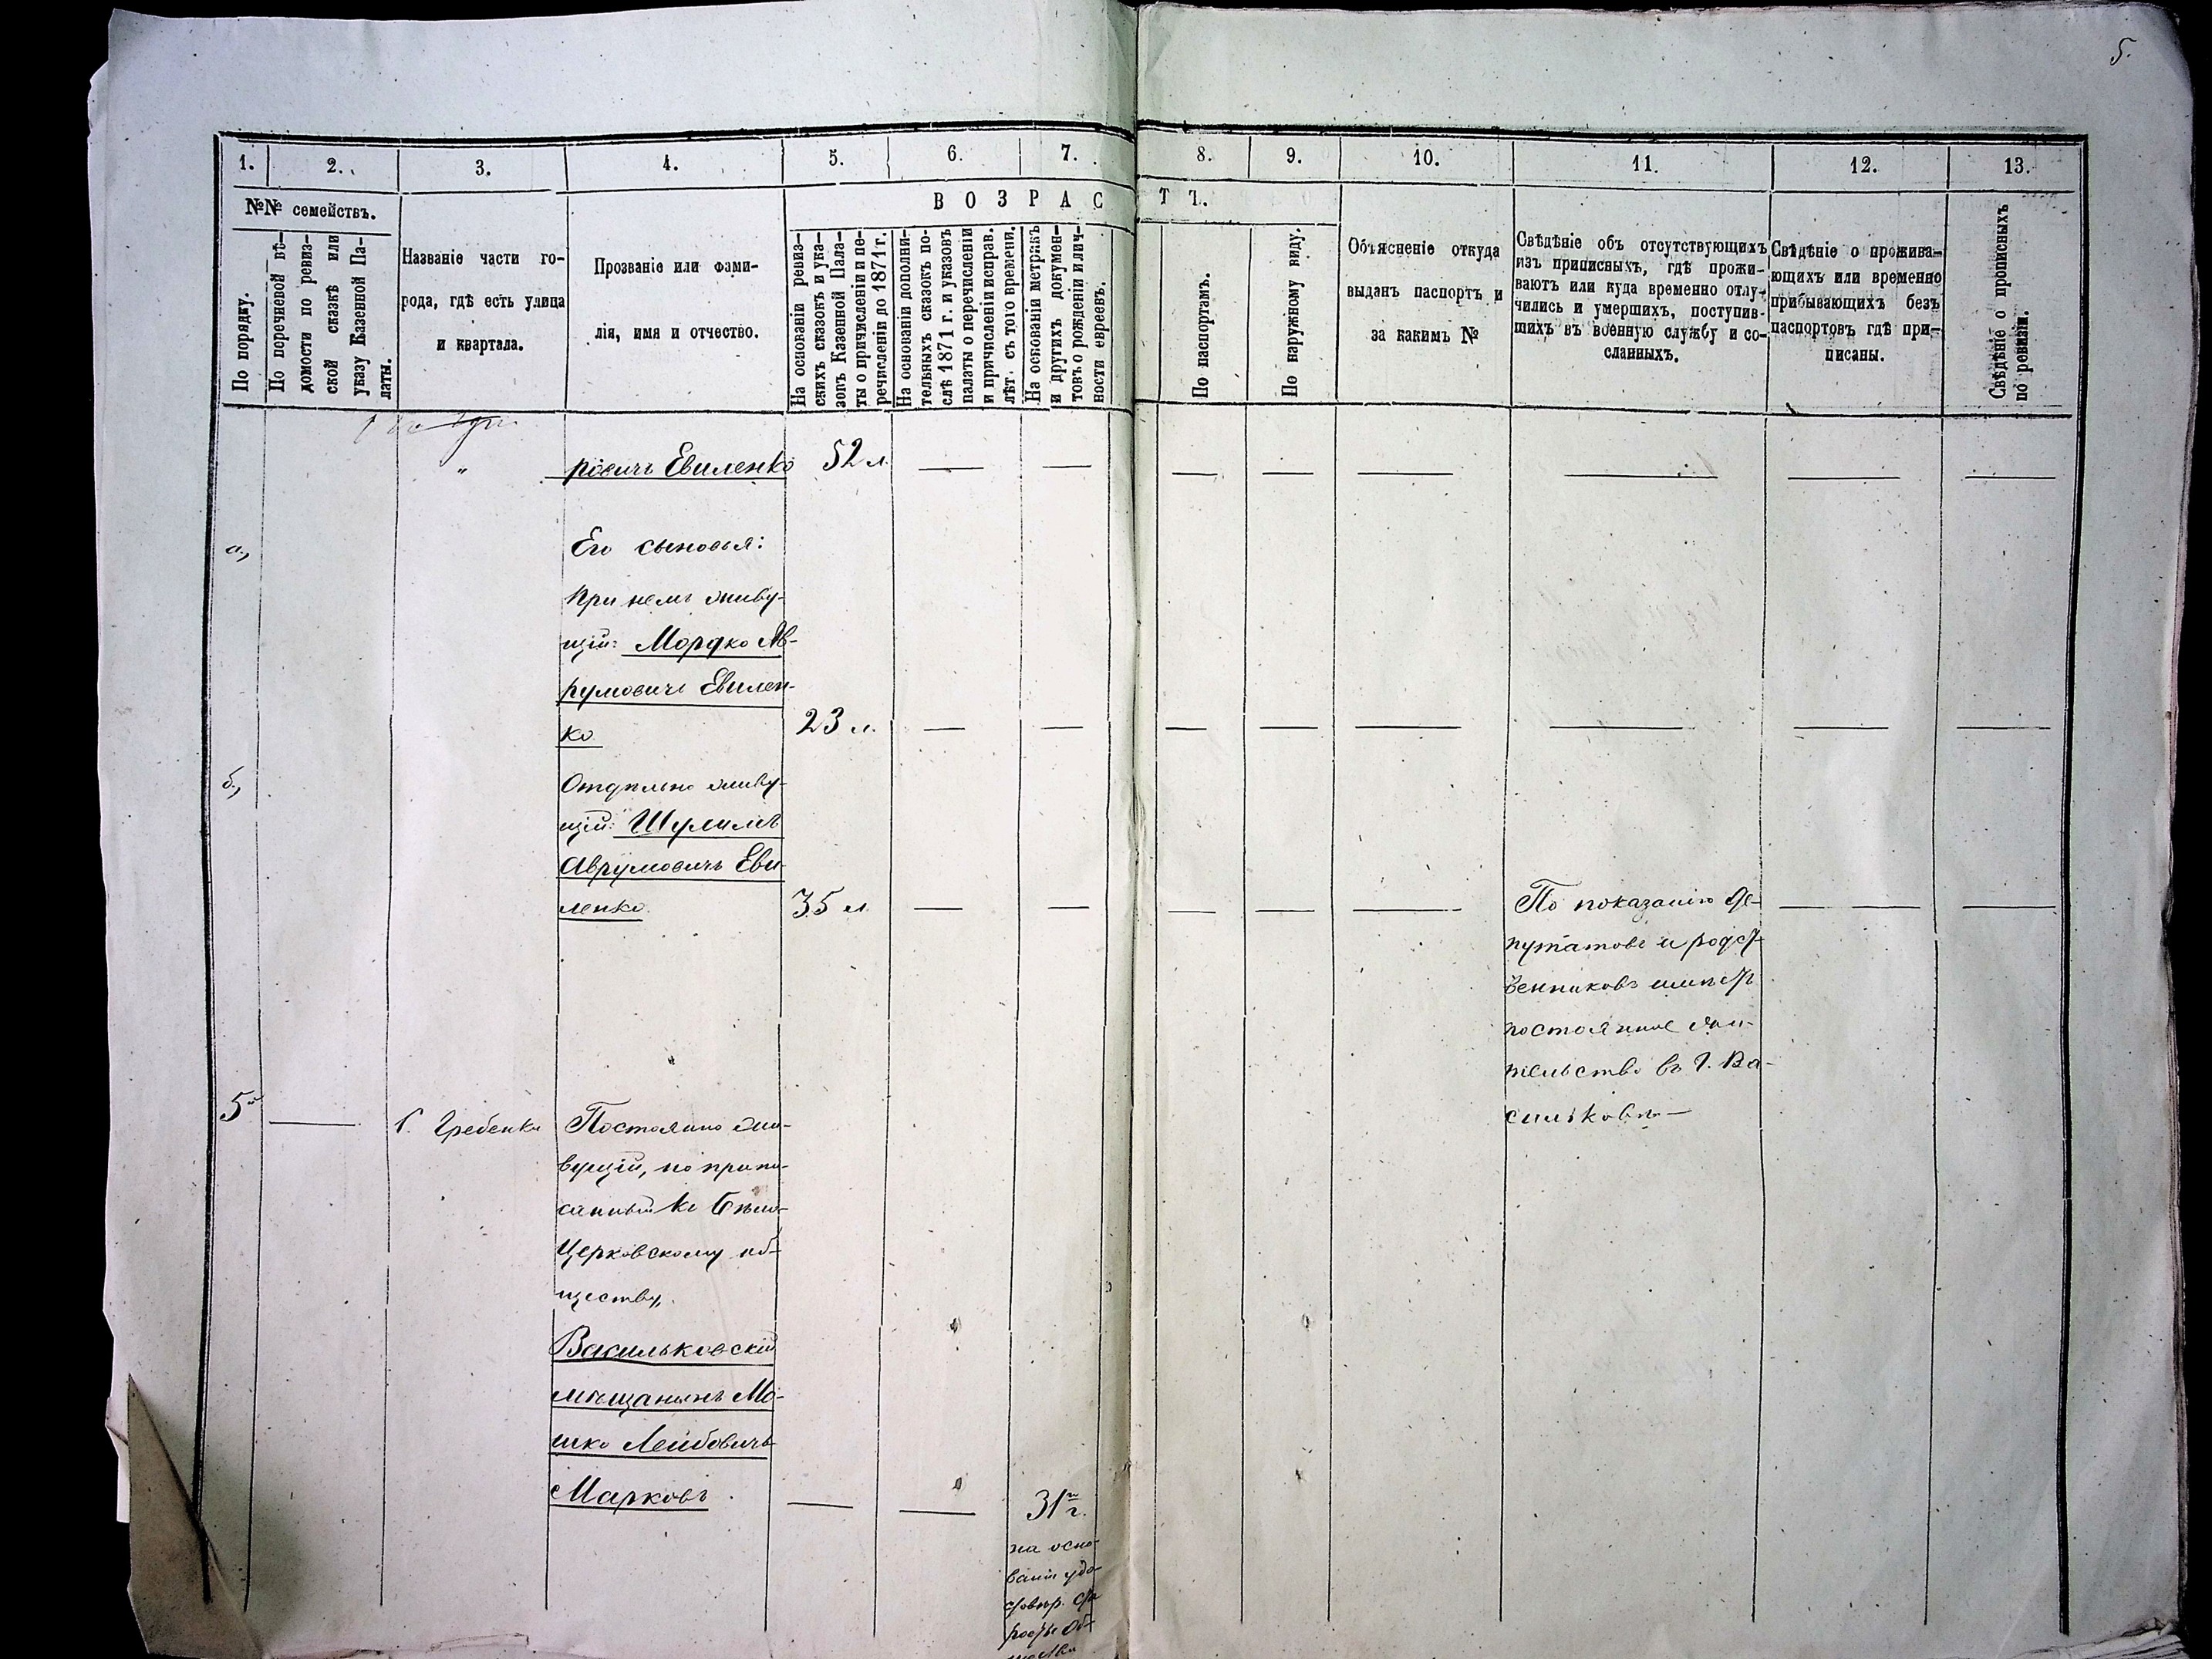 5.
1. 2. 3. 4. 5. 6. 7. 8. 9. 10. 11. 12. 13.
№№ семействъ.
ВОЗРАСТЪ.
По порядку.
По поречневой вѣ-
домости по ревиз-
ской сказкѣ или
указу Казенной Па-
латы.
Названіе части го-
рода, гдѣ есть улица
и квартала.
Прозваніе или фами-
лія, имя и отчество.
На основаніи ревиз-
скихъ сказокъ и ука-
зовъ Казенной Пала-
ты о причисленіи и пе-
речисленіи до 1871 г.
На основаніи дополни-
тельныхъ сказокъ по-
слѣ 1871 г. и указовъ
палаты о перечисленіи
и причисленіи исправ.
лѣт. съ того времени.
На основаніи метрикъ
и другихъ докумен-
товъ о рожденіи и лич-
ности евреевъ.
По паспортамъ.
По наружному виду.
Объясненіе откуда
выданъ паспортъ и
за какимъ №
Свѣдѣніе объ отсутствующихъ
изъ приписныхъ, гдѣ прожи-
ваютъ или куда временно отлу-
чились и умершихъ, поступив-
шихъ въ военную службу и со-
сланныхъ.
Свѣдѣніе о прожива-
ющихъ или временно
прибывающихъ безъ
паспортовъ гдѣ при-
писаны.
Свѣдѣніе о прописныхъ
по ревизіи.
" Евиленко 52 л. — — — — — — — —
а, Его сыновья:
При немъ живу-
щій: Мордко Ав-
румовичъ Евилен-
ко 23 л. — — — — — — — —
б, Отдѣльно живу-
щій: Шулимъ
Аврумовичъ Еви-
ленко 35 л. — — — — — По показанію Де- — —
путатовъ и родст-
венниковъ имѣетъ
постоянное жи-
тельство въ г. Ва-
сильковѣ —
5й — Гребенки Постоянно жи-
вущій, но припи-
санный къ Бѣло-
Церковскому об-
ществу,
Васильковскій
мѣщанинъ Мо-
шко Лейбовичъ
Марковъ — — 31 г.
на осно-
ваніи удо-
стовѣр. Ста